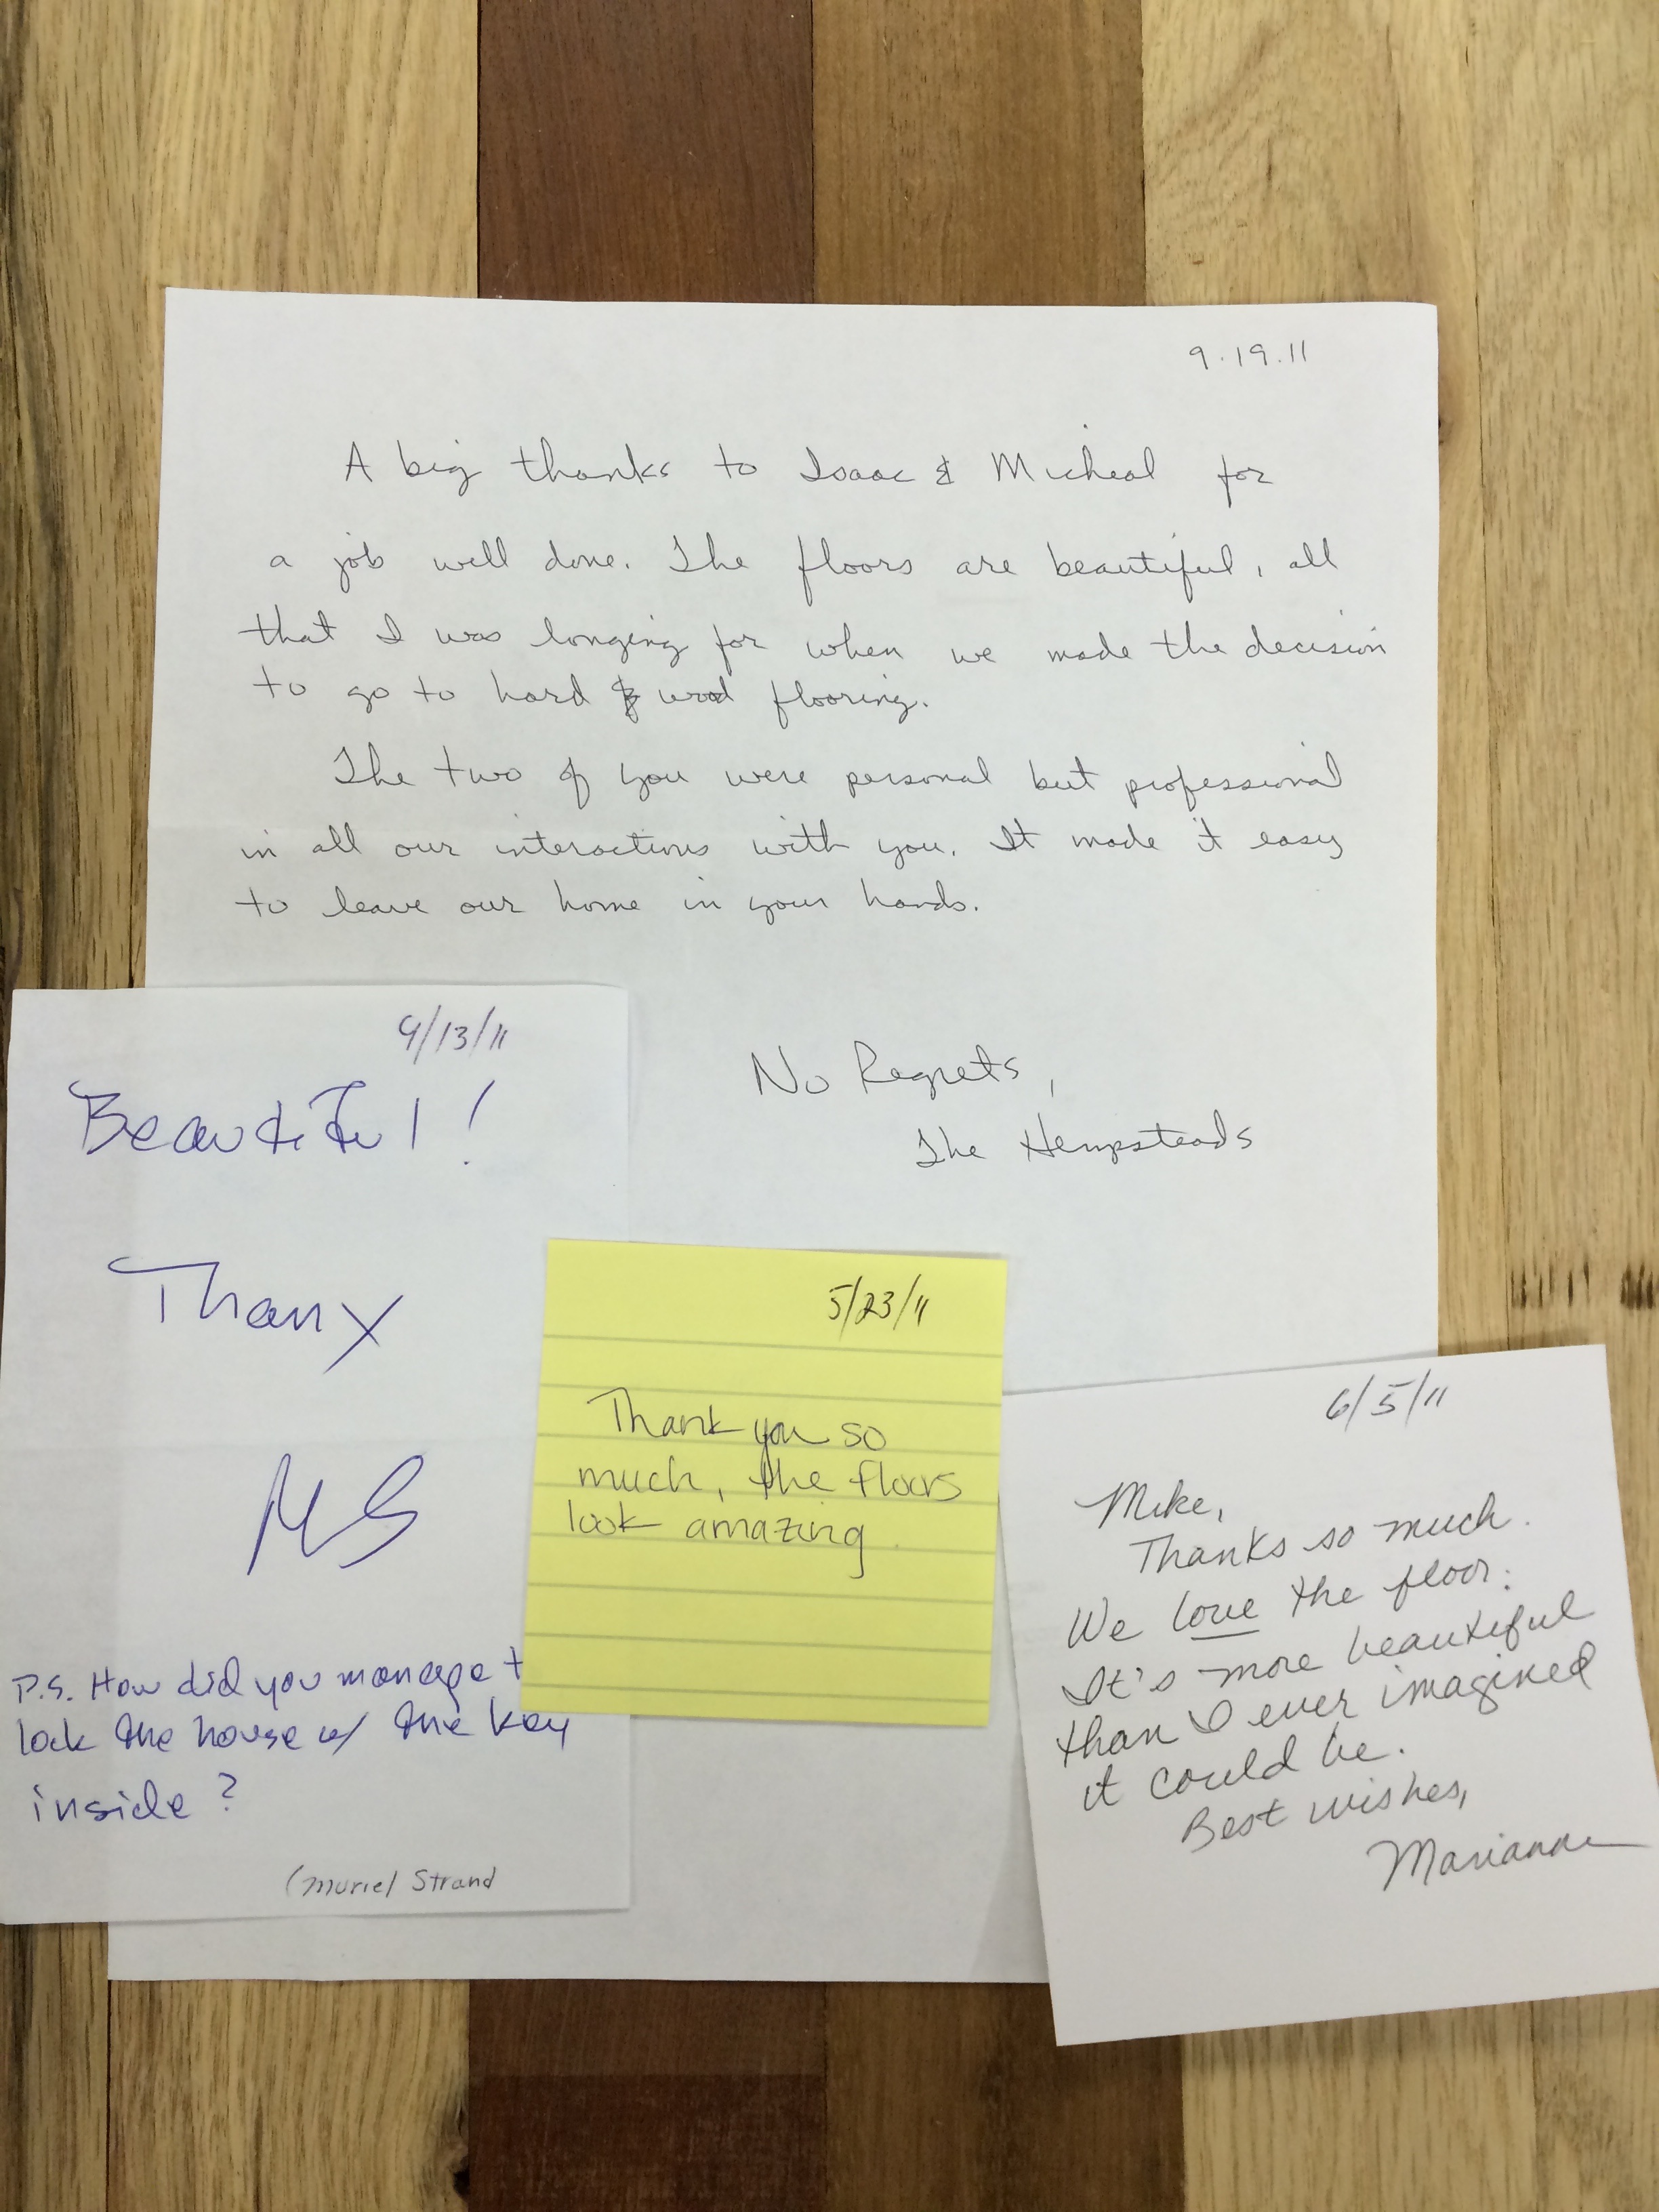 9.19.11
A big thanks to Isaac & Micheal for
a job well done. The floors are beautiful, all
that I was longing for when we made the decision
to go to hard wood flooring.
The two of you were personal but professional
in all our interactions with you. It made it easy
to leave our home in your hands.
No Regrets,
The Hempsteads
9/13/11
Beautiful!
Thanx
MS
P.S. How did you manage t
lock the house w/ the key
inside?
(Muriel Strand
5/23/11
Thank you so
much, the floors
look amazing.
6/5/11
Mike,
Thanks so much.
We love the floor.
It's more beautiful
than I ever imagined
it could be.
Best wishes,
Marianne